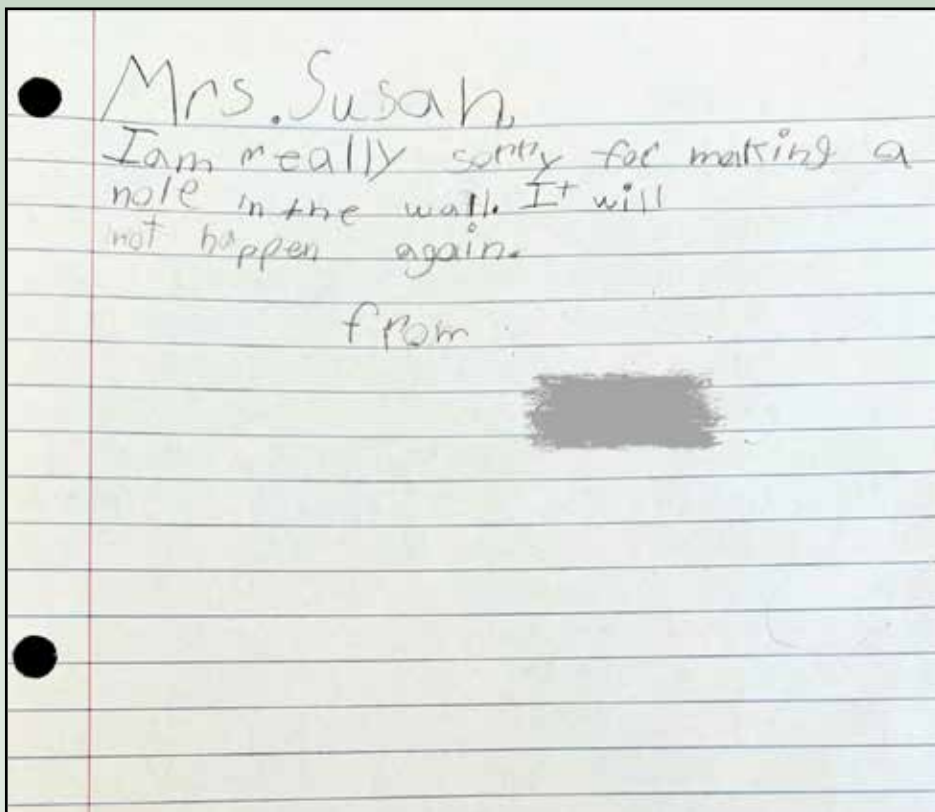 Mrs. Susan,
I am really sorry for making a
hole in the wall. It will
not happen again.
from